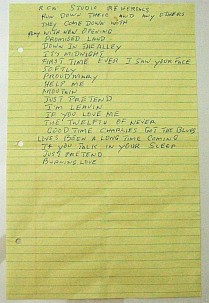 RCA STUDIO REHERSALS
RUN DOWN THESE AND ANY OTHERS
THEY COME DOWN WITH
PLAY WITH NEW OPENING
PROMISED LAND
DOWN IN THE ALLEY
IT'S MIDNIGHT
FIRST TIME EVER I SAW YOUR FACE
SOFTLY
PROUD MARY
HELP ME
MOUNTAIN
JUST PRETEND
I'M LEAVIN
IF YOU LOVE ME
THE TWELFTH OF NEVER
GOOD TIME CHARLIES GOT THE BLUES
LIVES BEEN A LONG TIME COMING
IF YOU TALK IN YOUR SLEEP
JUST PRETEND
BURNING LOVE